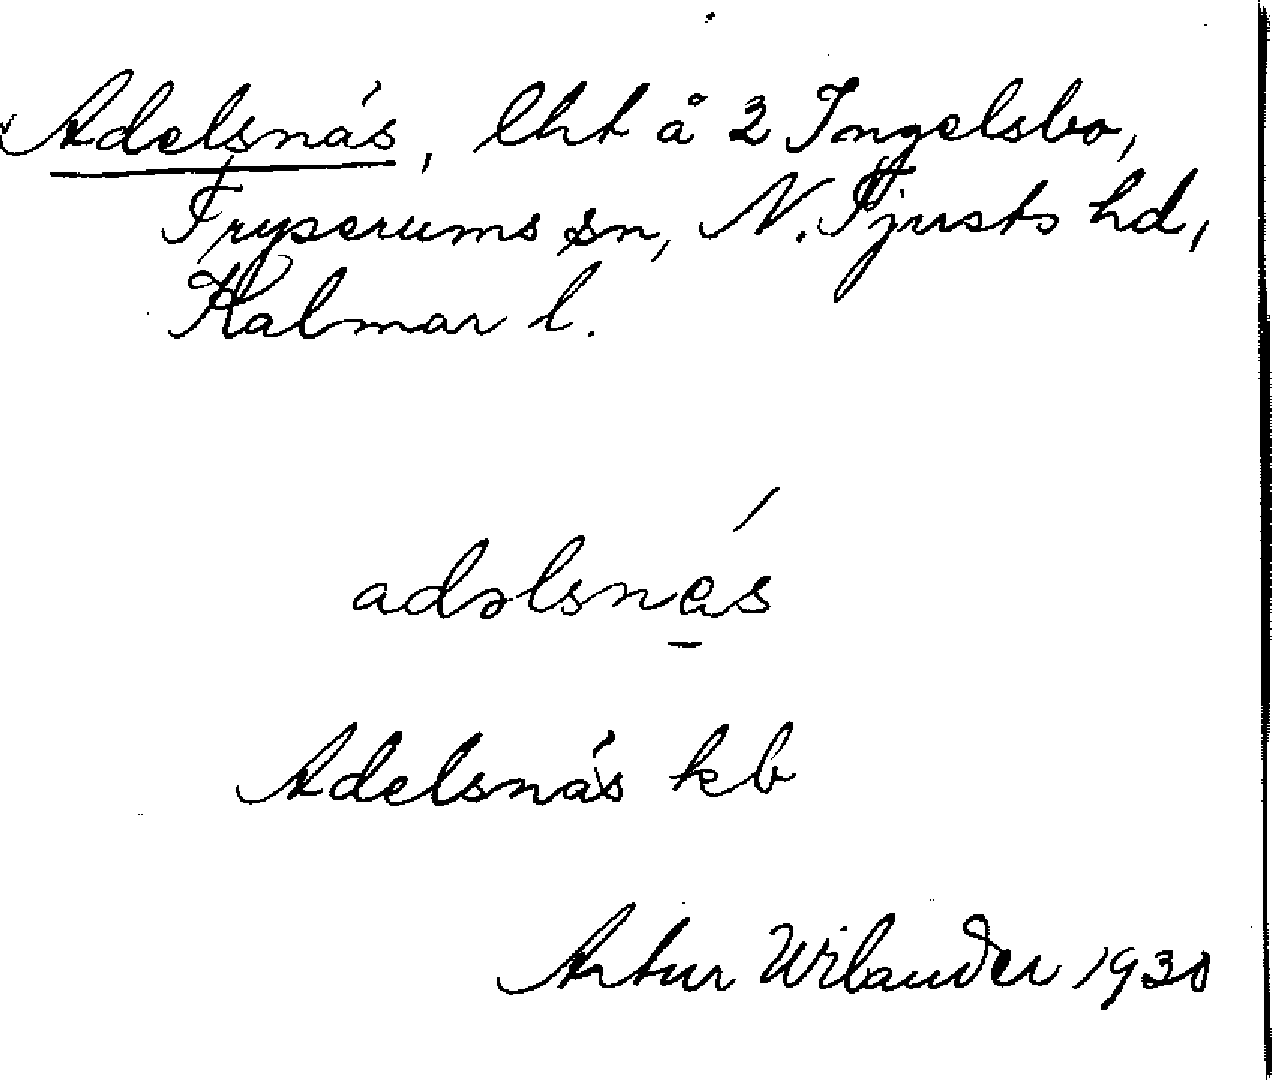 Adelsnäs, lht å 2 Ingelsbo,
Fryserums sn, N. Tjusts hd,
Kalmar l.
adəlsnɛ́s
Adelsnäs kb
Artur Wilander 1930